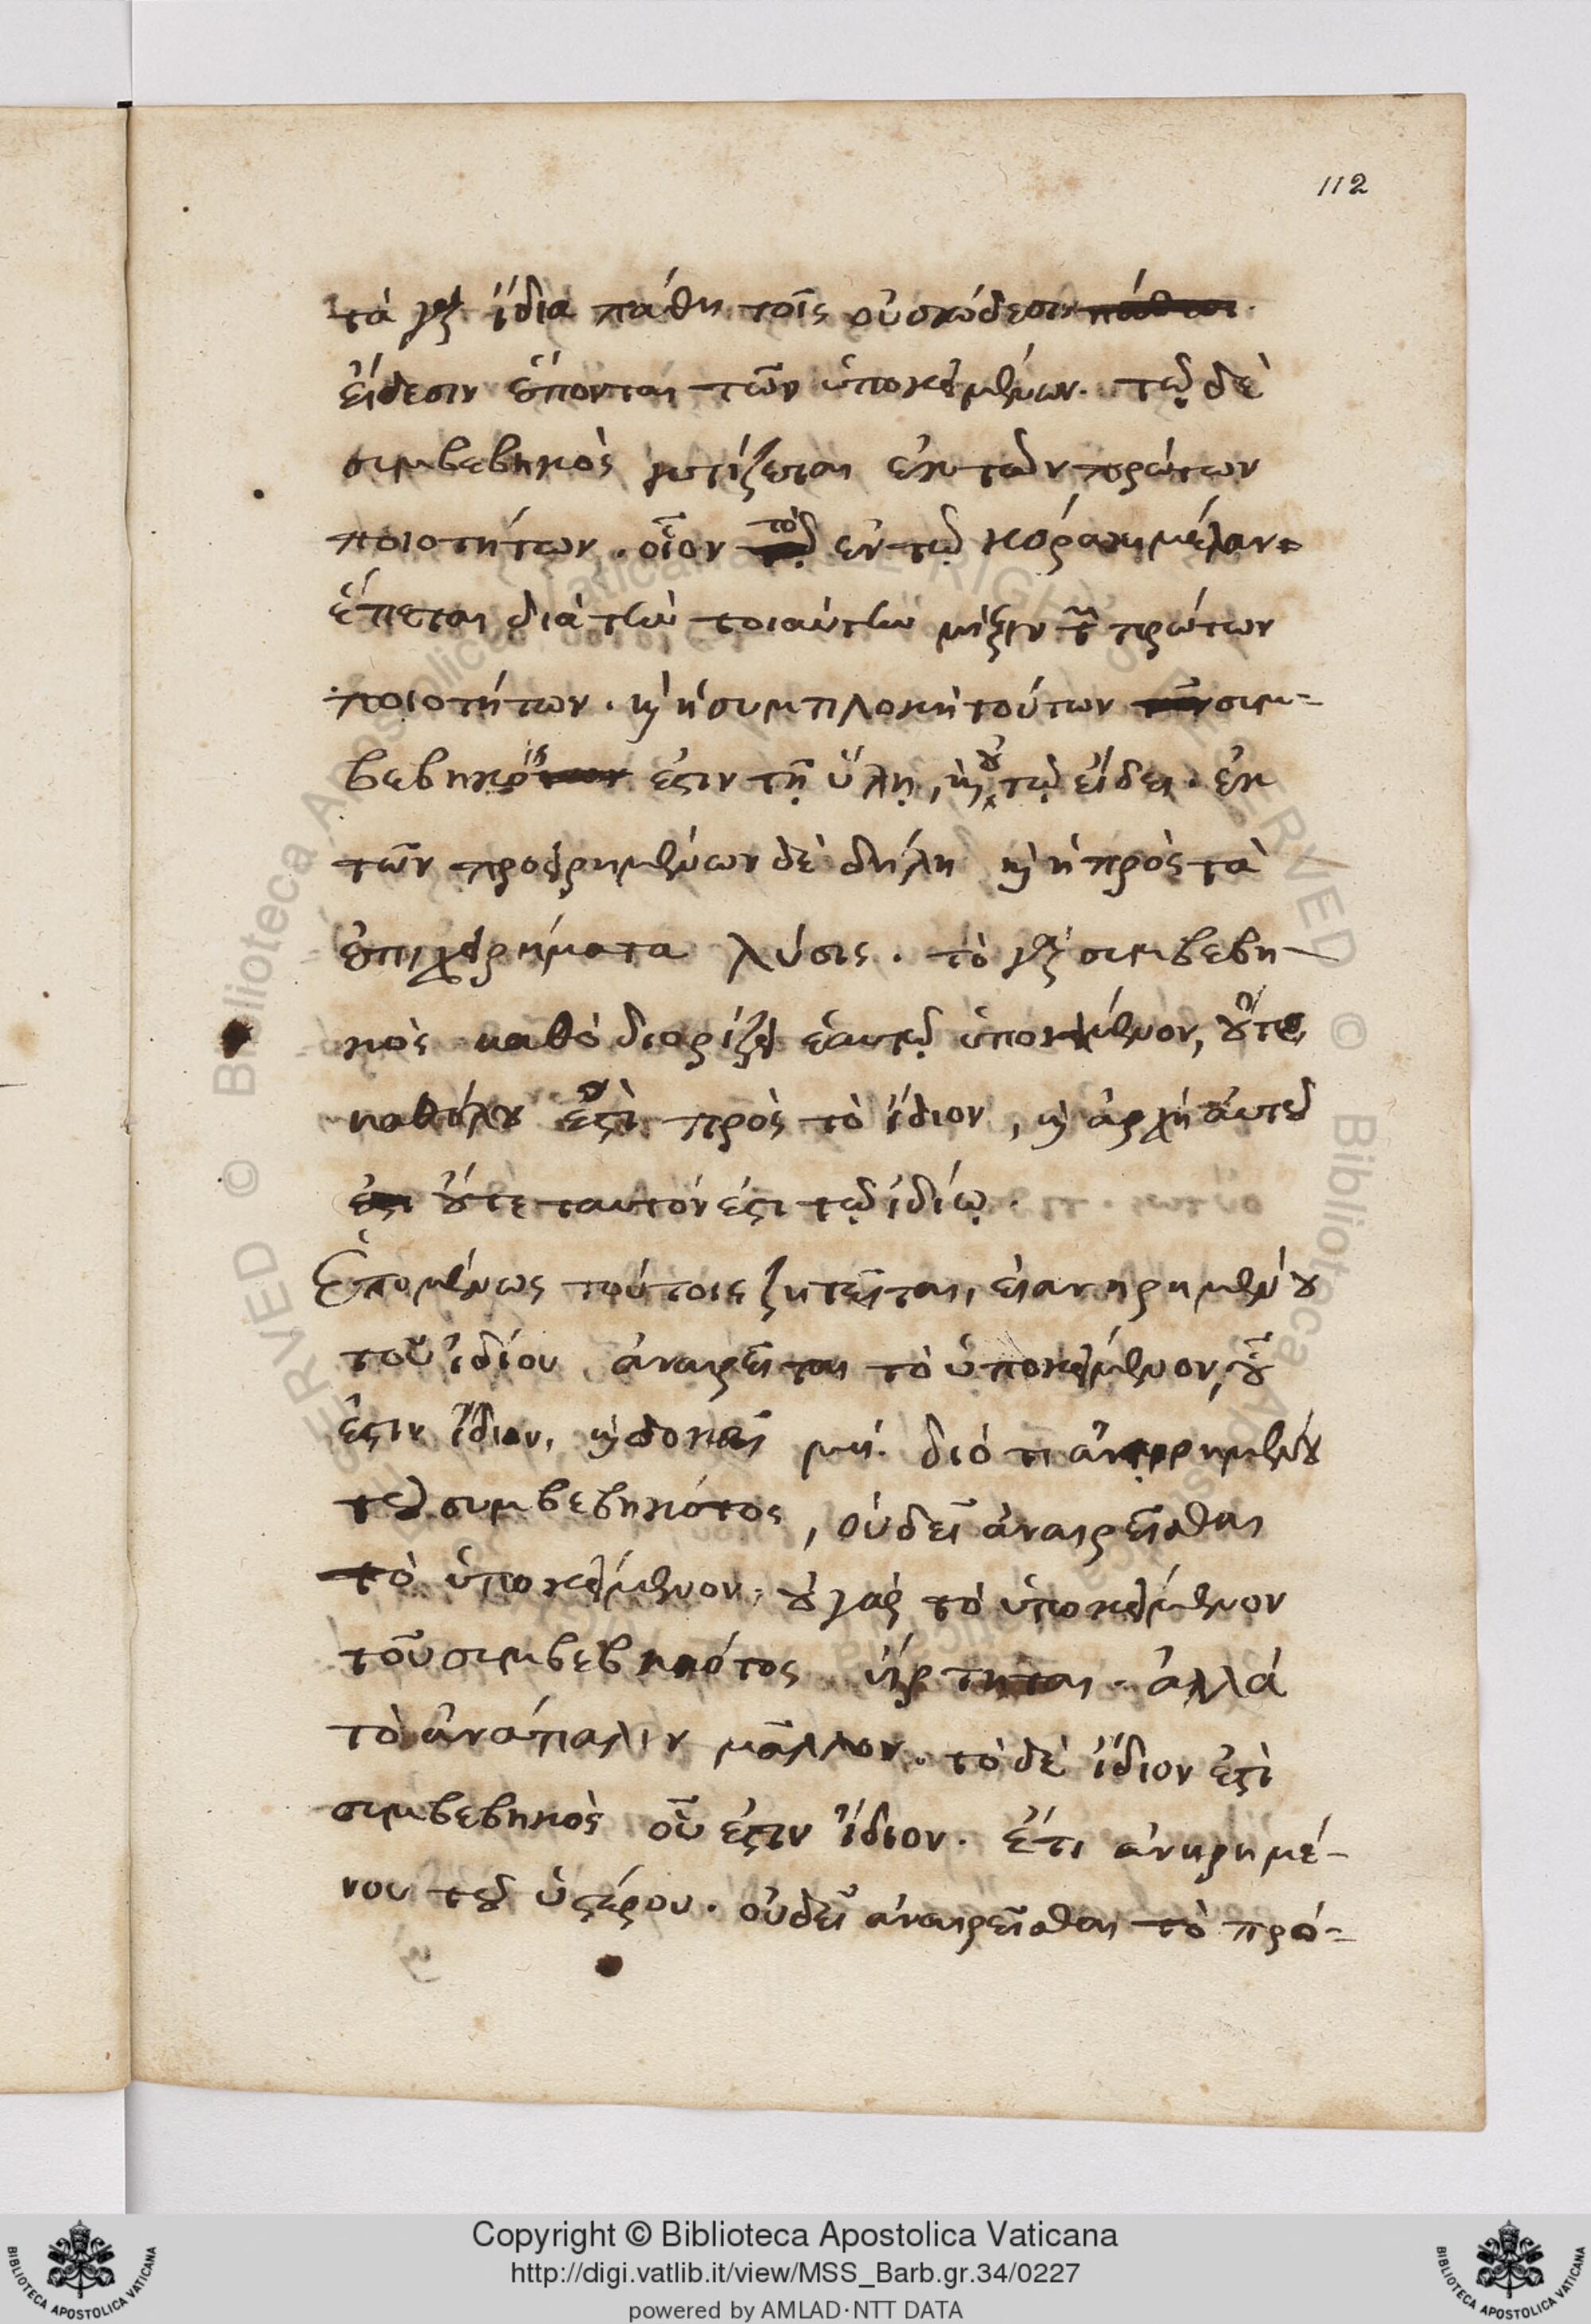 112
τὰ γὰρ ἴδια πάθη τοῖς οὐσιώδεσιν
εἴδεσιν ἕπονται τῶν ὑποκειμένων. τῷ δὲ
συμβεβηκὸς γνωρίζεται ἐκ τῶν πρώτων
ποιοτήτων. οἷον τὸ ἐν τῷ κόρακι μέλαν
ἕπεται διὰ τὴν τοιαύτην μίξιν τῶν πρώτων
ποιοτήτων. καὶ ἡ συμπλοκὴ τούτων συμ-
βεβηκ ἐστιν τῇ ὕλῃ, καὶ οὐ τῷ εἴδει. ἐκ
τῶν προειρημένων δὲ δήλη καὶ ἡ πρὸς τὰ
ἐπιχειρήματα λύσις. τὸ γὰρ συμβεβη-
κὸς καθὸ διορίζει ἑαυτῷ ὑποκείμενον, οὔτε
καθόλου ἐστὶ πρὸς τὸ ἴδιον, καὶ ἀρχὴ αὐτοῦ
οὔτε ταυτόν ἐστι τῷ ἰδίῳ.
Ἑπομένως τούτοις ζητεῖται, εἰ ἀνῃρημένου
τοῦ ἰδίου ἀναιρεῖται τὸ ὑποκείμενον, οὗ
ἐστιν ἴδιον, καὶ δοκεῖ μή. διότι ἀνῃρημένου
τοῦ συμβεβηκότος, οὐ δεῖ ἀναιρεῖσθαι
τὸ ὑποκείμενον. οὐ γὰρ τὸ ὑποκείμενον
τοῦ συμβεβηκότος ἤρτηται. ἀλλὰ
τὸ ἀνάπαλιν μᾶλλον. τὸ δὲ ἴδιον ἐστὶ
συμβεβηκὸς οὗ ἐστιν ἴδιον. ἔτι ἀνῃρημέ-
νου τοῦ ὑστέρου. οὐ δεῖ ἀναιρεῖσθαι τὸ πρό-
Copyright © Biblioteca Apostolica Vaticana
http://digi.vatlib.it/view/MSS_Barb.gr.34/0227
powered by AMLAD·NTT DATA